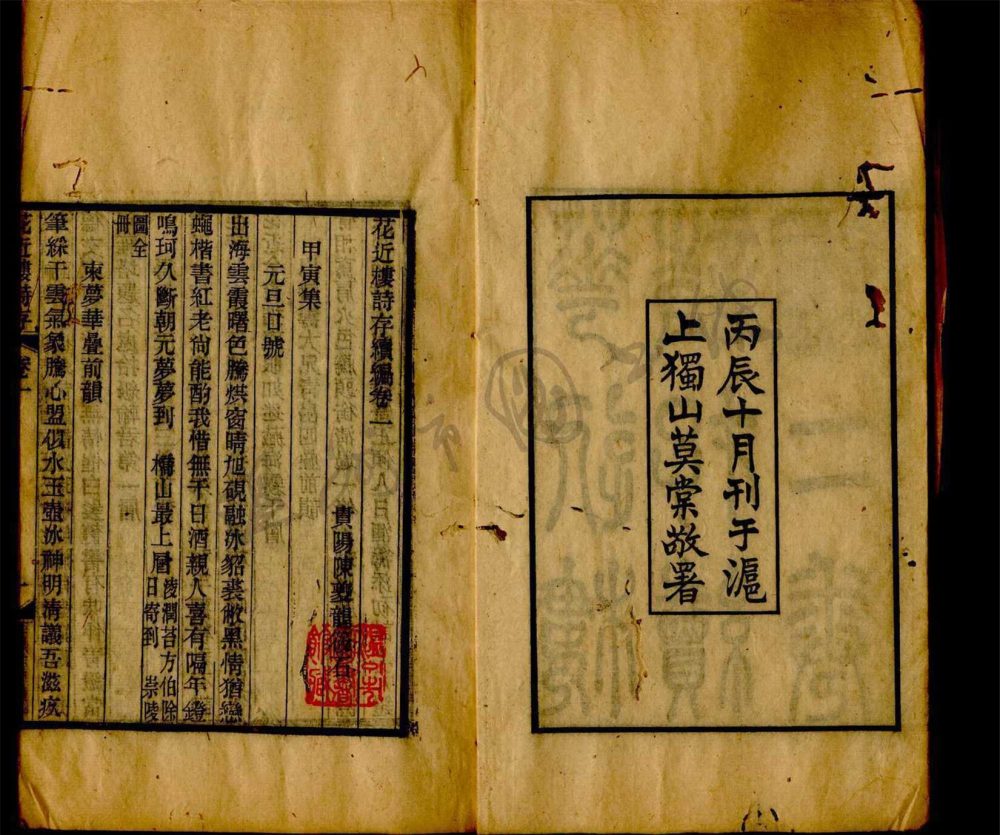 丙辰十月刊于滬
上獨山莫棠敬署
花近樓詩存續編卷一
甲寅集
貴陽陳夔龍筱石
元旦口號
出海雲霞曙色騰烘窗晴旭硯融冰貂裘敝黑情猶戀
蠅楷書紅老尚能酌我惜無千日酒親人喜有隔年鐙
鳴珂久斷朝元夢夢到橋山最上層淩潤苔方伯除日寄到崇陵
圖全冊
柬夢華疊前韻
筆綵干雲氣象騰心盟似水玉壺冰神明清議吾滋疚
花近樓詩存 卷一